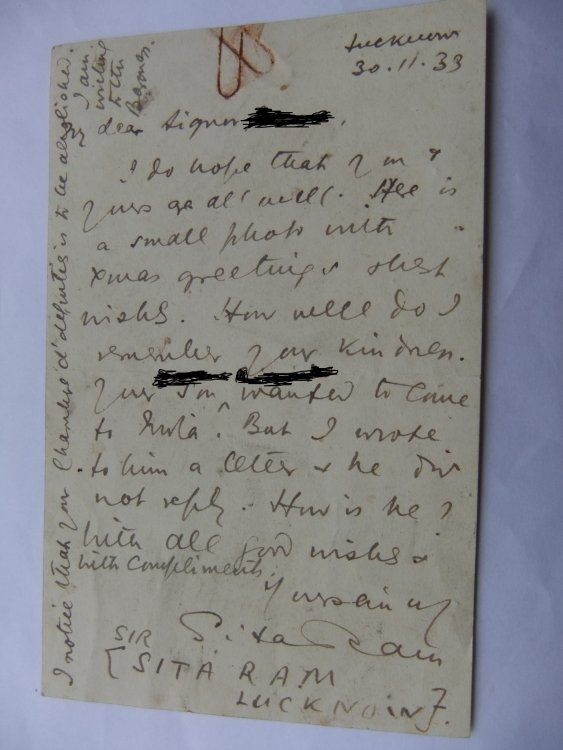 Lucknow
30.11.33
dear Signor
I do hope that you &
yours are all well. Here is
a small photo with
xmas greetings & best
wishes. How well do I
remember your kindness.
Your son wanted to come
to India. But I wrote
to him a letter & he did
not reply. How is he?
With all good wishes &
with compliments
Yours sincerely
Sita Ram
[SIR
SITA RAM
LUCKNOW].
I notice that your Chambre d'deputies is to be abolished.
I am
writing
to the